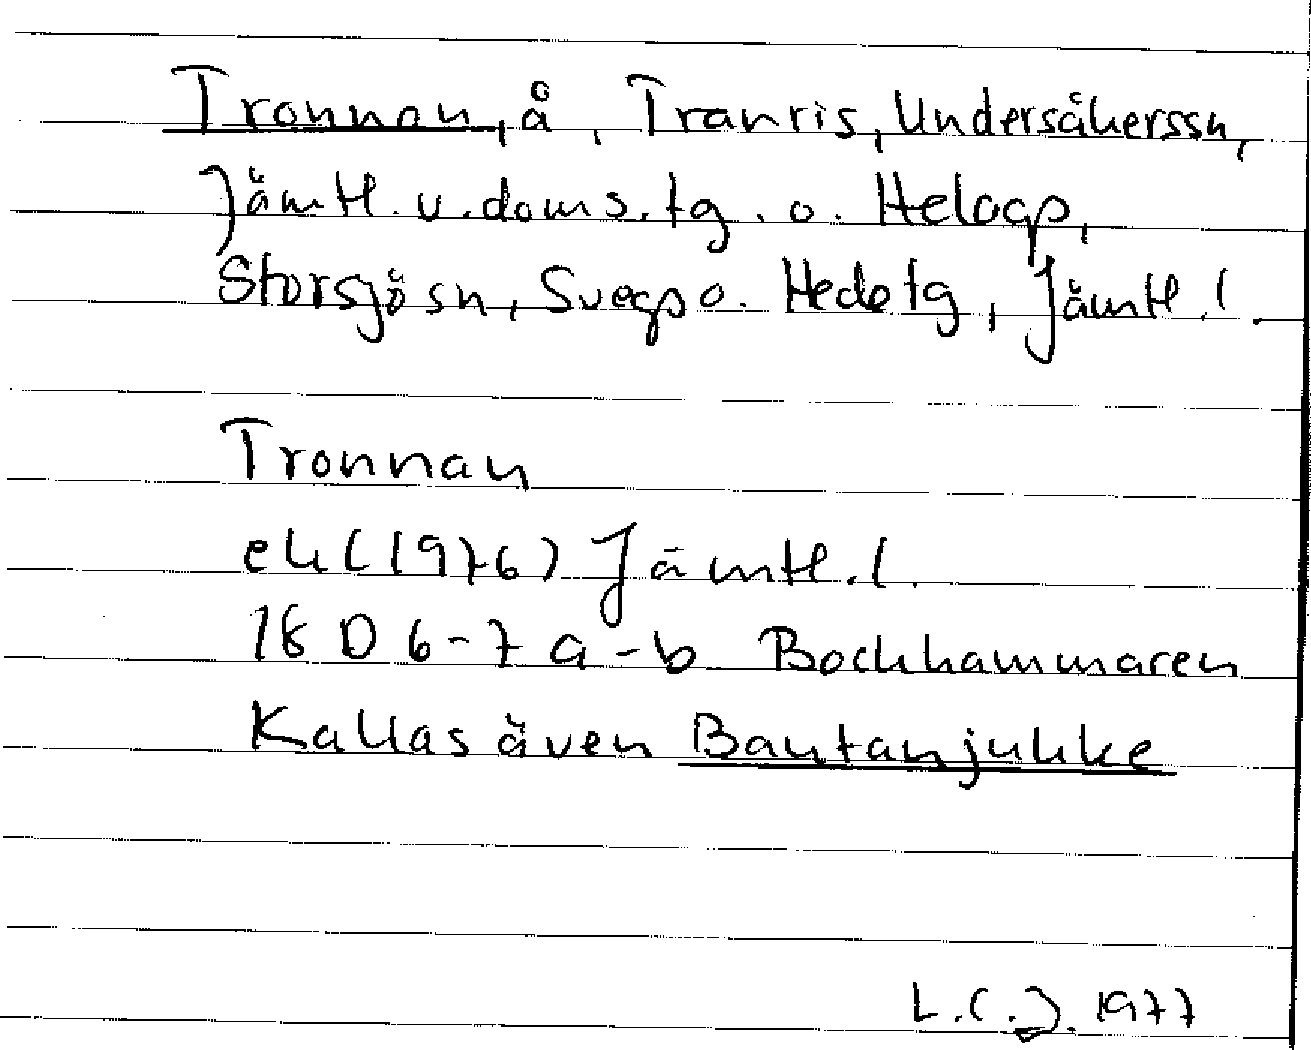 Tronnan, å, Tranris, Undersåkerssn,
Jämtl. v. doms. tg. o. Helagp,
Storsjö sn, Svegs o. Hede tg, Jämtl. l.
Tronnan
ek (1976) Jämtl. l.
18 D 6-7 a-b Bockhammaren
Kallas även Bautanjukke
L. C. J. 1977